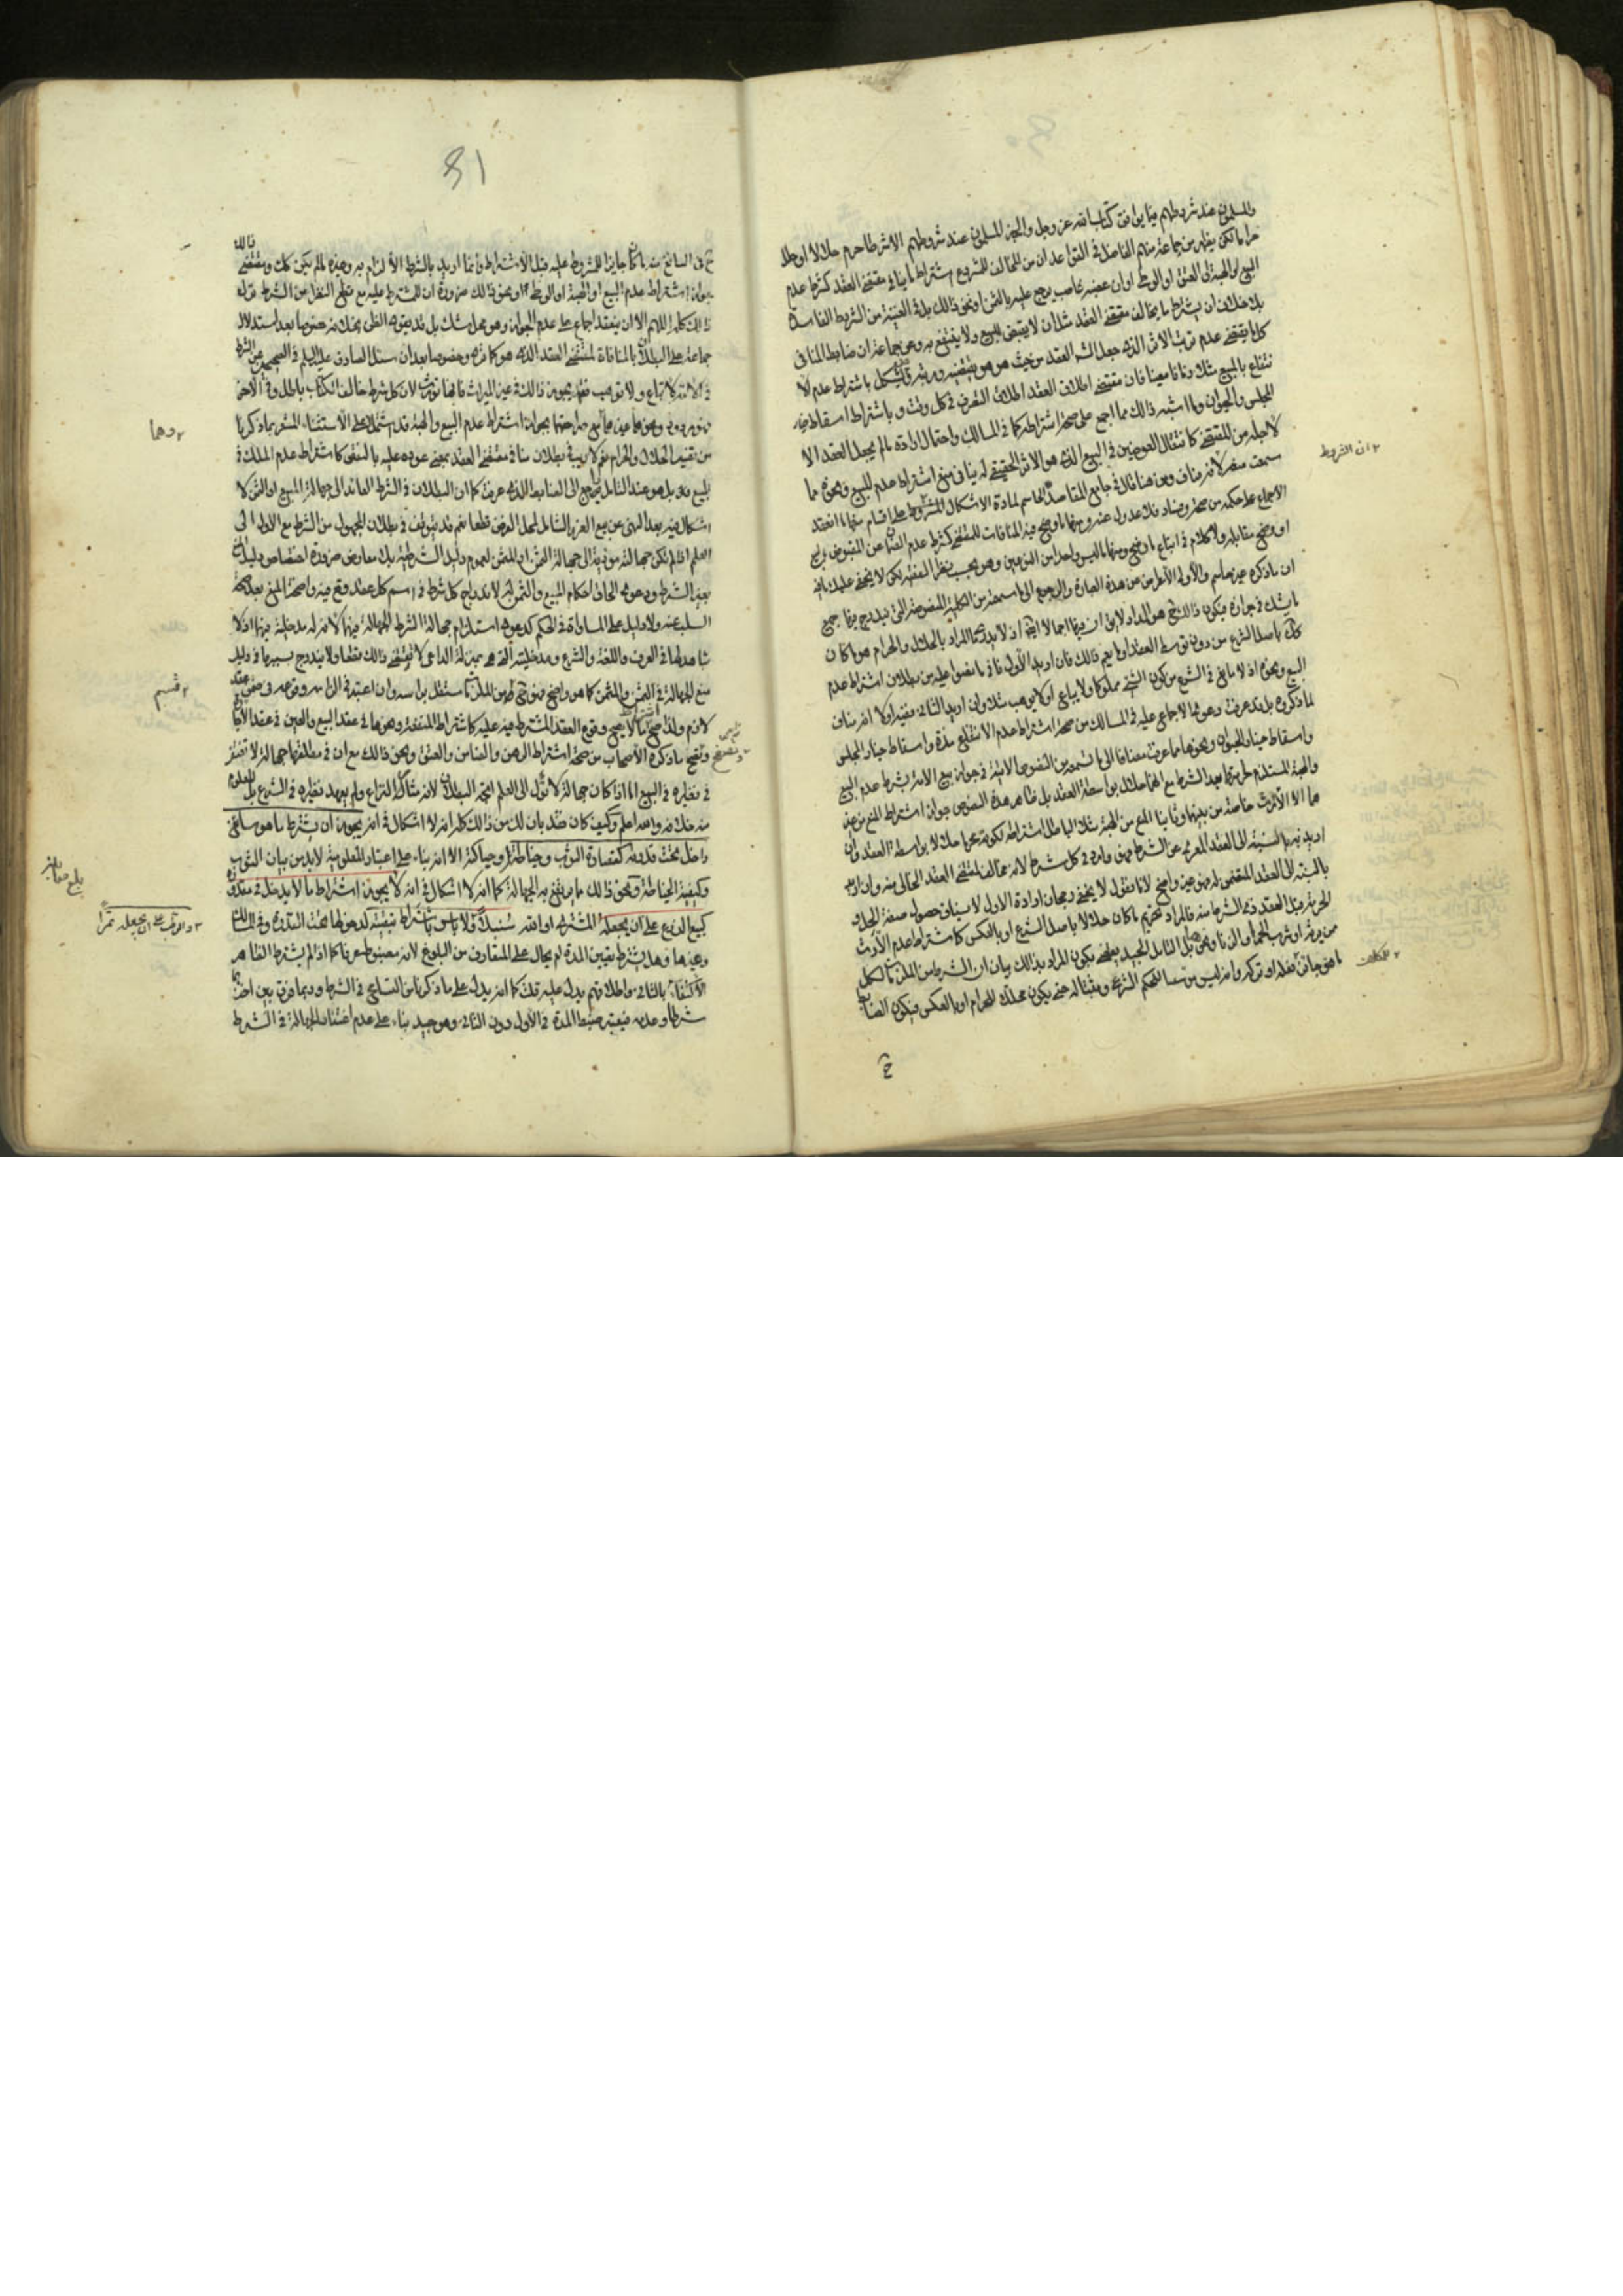 والمسلمون عند شروطهم مما يوافق كتاب الله عز وجل والخبر المسلمون عند شروطهم الا شرطا حرم حلالا او حلل
حراما لكن يظهر من جماعة منهم الفاضل في القواعد ان من المخالف للمشروع اشتراط ما ينافي مقتضى العقد كشرط عدم
البيع او الهبة او العتق او الوطى او ان غصبه غاصب يرجع عليه بالثمن او نحو ذالك بل في الغنية من الشروط الفاسدة
بلا خلاف ان يشترط ما يخالف مقتضى العقد مثل ان لا يقبض المبيع ولا ينتفع به وعن جماعة ان ضابط المنافي
كل ما يقتضى عدم ترتب الاثر الذى جعل الشارع العقد من حيث هو هو يقتضيه ورتبه عليه فاشكل باشتراط عدم الا
نتفاع بالمبيع مثلا زمانا معينا فان مقتضى اطلاق العقد اطلاق التصرف في كل وقت وباشتراط اسقاط خيار
المجلس والحيوان وما اشبه ذالك مما اجمع على صحة اشتراطه كما في المسالك واحتمال ارادة ما لم يجعل العقد الا
لاجله من المقتضى كانتقال العوضين في البيع الذى هو الاثر الحقيقى له ينافي منع اشتراط عدم البيع ونحوه مما
سمعت سفره لانه مناف ومن هنا قال في جامع المقاصد الحاسم لمادة الاشكال ان الشروط على اقسام منها ما انعقد
الاجماع على حكمه من صحة وفساد فلا عدول عنه ومنها ما وضح فيه المنافات للمقتضى كشرط عدم الضمان عن المقبوض بالبيع
او وضح مقابله ولا كلام في اتباع ما وضح ومنها ما ليس واحدا من النوعين وهو بحسب نظر الفقيه لكن لا يخفى عليك
ان ما ذكره غير حاسم والاولى الاعراض عن هذه العبارة والرجوع الى ما سمعته من الكلية المنصوصة التى يندرج فيها جميع
ما يشك في جوازه فيكون ذالك هو المدار لا يق ان فيها اجمالا ايضا اذ لا يدرى ان المراد بالحلال والحرام هو ما كان
كك باصل الشرع من دون توسط العقد او ما يعم ذالك فان اريد الاول نافي ما نصوا عليه من بطلان اشتراط عدم
البيع ونحوه اذ لا مانع في الشرع من كون الشئ مملوكا ولا يباع او لا يوهب مثلا وان اريد الثانى ففيه اولا انه مناف
لما ذكروه بل قد عرفت دعويهما الاجماع عليه في المسالك من صحة اشتراط عدم الانتفاع مدة واسقاط خيار المجلس
واسقاط خيار الحيوان ونحوها مما عرفت مضافا الى ما تسمعه من النصوص الاتية في جواز بيع الامة بشرط عدم البيع
والهبة المستلزم لحرمتهما بعد الشرط مع انهما حلال بواسطة العقد بل ظاهر هذه النصوص جواز اشتراط المنع من
هما الا الارث خاصة من بينها وثانيا المنع من الهبة مثلا الباطل اشتراطه لكونه محرما حلالا بواسطة العقد وان
اريد به بالنسبة الى العقد المعرى عن الشرط فهو وارد في كل شرط لانه مخالف لمقتضى العقد الخالى منه وان اريد
بالنسبة الى العقد المتضمن له فهو عين واضح لانا نقول لا يخفى رجحان ارادة الاول لا سيما في حصول صفة الحل و
الحرمة قبل العقد ذى الشرط منه فالمراد تحريم ما كان حلالا باصل الشرع او بالعكس كاشتراط عدم الارث
ممن يورث او شرب الخمر او الزنا ونحو بل التامل الجيد يقضى بكون المراد بذالك بيان ان الشرط من الملزمات لكل
ما هو جائز فعله او تركه وانه ليس مؤسسا للحكم الشرعى ومثبتا له حتى يكون محللا للحرام او بالعكس فيكون الضابط
ح
٢ ان الشروط
81
ح في السائغ منه ما كان جايزا للمشروط عليه قبل الاشتراط وانما اريد بالشرط الالزام به وضده ما لم يكن كك ومقتضى ذالك
جواز اشتراط عدم البيع او الهبة او الوطى او نحو ذالك ضرورة ان للمشترط عليه مع قطع النظر عن الشرط ترك
ذالك كله اللهم الا ان ينعقد اجماع على عدم الجواز وهو محل شك بل قد يقوى الظن بخلافه خصوصا بعد استدلال
جماعة على البطلان بالمنافاة لمقتضى العقد الذى هو كما ترى وخصوصا بعد ان سئل الصادق عليه السلم في الصحيح عن الشرط
في الاماء لا تباع ولا توهب فقال يجوز ذالك في غير الميراث فانها تورث لان كل شرط خالف الكتاب باطل
من تقييد الحلال والحرام نعم لا ريب في بطلان منافي مقتضى العقد بمعنى عوده عليه بالنقض كاشتراط عدم الملك في
اشكال فيه بعد النهى عن بيع الغرر الشامل لمحل الفرض قطعا نعم قد يتوقف في بطلان المجهول من الشرط مع الاول الى
العلم اذا لم تكن جهالته مؤدية الى جهالة الثمن او المثمن لعموم دليل الشرطية بلا معارض ضرورة اختصاص دليل المنع
بغير الشرط ودعوى الحاق احكام المبيع والثمن به لاندراج كل شرط في اسم كل عقد وقع فيه واضحة المنع بعد صحة
السلب عنه ولا دليل على المساواة في الحكم كدعوى استلزام مجهالة الشرط الجهالة فيهما لانه له مدخلية فيهما اذ لا
شاهد لها في العرف واللغة والشرع ومدخليته التى هى بمنزلة الداعى لا تقتضى ذالك قطعا ولا يندرج بسببها في دليل
منع الجهالة في الثمن والمثمن كما هو واضح فهو ح من الملزمات مستقل براسه وان اعتبر في الزامه وقوعه في ضمن عقد
لازم ولذا صح ما لا يصح وقوع العقد المشترط فيه عليه كاشتراط المنفعة ونحوها في عقد البيع والعين في عقد الاجارة
ويتضح ما ذكره الاصحاب من صحة اشتراط الرهن والضامن والعتق ونحو ذالك مع ان في مطلقها جهالة لا تغتفر
في نظيره في البيع اما اذا كان جهالة لا تؤل الى العلم اتجه البطلان لانه مثار النزاع ولم يعهد نظيره في الشرع بل المعلوم
منه خلافه والله اعلم وكيف كان فقد بان لك من ذالك كله انه لا اشكال في انه يجوز ان يشترط ما هو سائغ
داخل تحت قدرته كقصارة الثوب وخياطته وحياكته الا انه بناء على اعتبار المعلومية لا بد من بيان الثوب
وكيفية الخياطة ونحو ذالك مما يرتفع به الجهالة كما انه لا اشكال في انه لا يجوز اشتراط ما لا يدخل في مقدوره
كبيع الزرع على ان يجعله المشترط او الله سنبلا ولا باس باشتراط تبقيته لدخولها تحت القدرة وفي المسالك
وغيرها وهل يشترط تعيين المدة ام يحال على المتعارف من البلوغ لانه مضبوط عرفا كما اذا لم يشترط الظاهر
الاكتفاء بالثانى واطلاقهم يدل عليه قلت كما انه يدل على ما ذكرناه من التسامح في الشرط وربما فرق بين اخذها
شرطا وعدمه فيعتبر ضبط المدة في الاول دون الثانى وهو جيد بناء على عدم اغتفار الجهالة في الشرط
٢ وهما
٢ قسم
بلغ مقابلة
٢ والرطب على ان يجعله تمرا